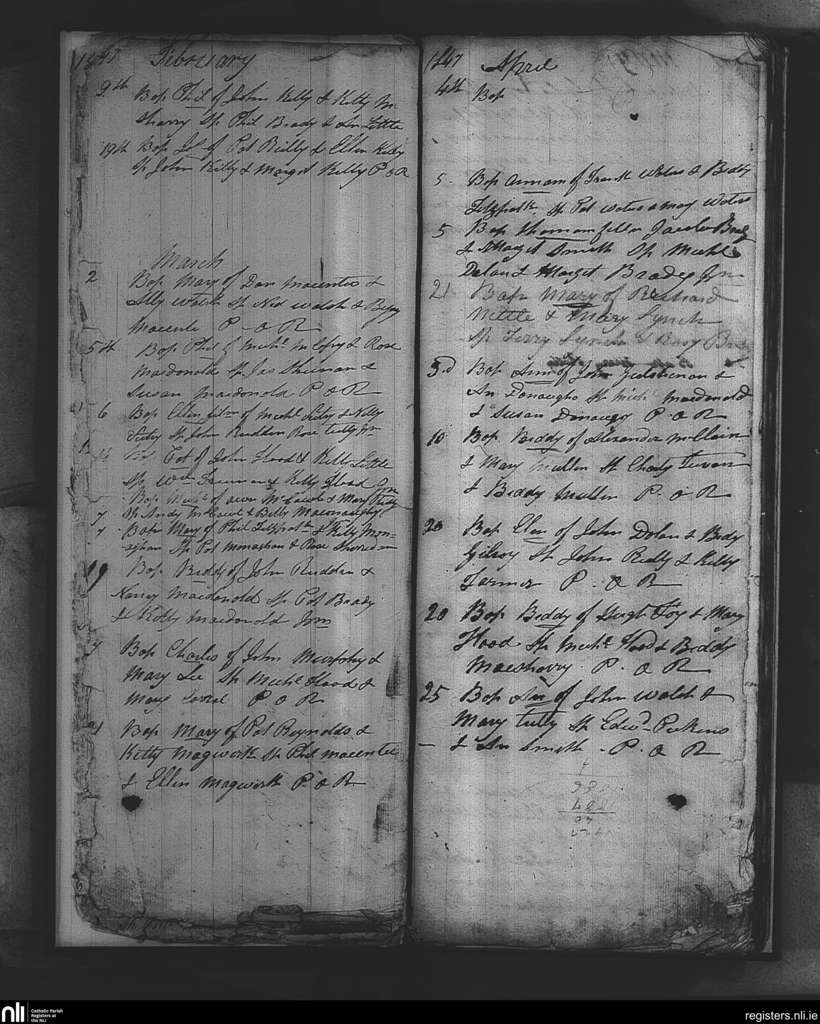 1847 February
9th Bap Phil of John Kelly & Kitty Mc
sharry Sp Phil Brady & An Little
19th Bap of Pat Reilly & Ellen Kelly
Sp John Kelly & Margt Kelly P O R
March
2 Bap Mary of Dan Macentee &
Walsh Sp Ned Walsh &
Macente P - O R
5th Bap Phil of Michl & Rose
Macdonald Sp Jas Sheenan &
Susan Macdonald P O R
6 Bap Ellen of Michl Tully & Nelly
Sp John Rudden Rose Tully
Pat of John Flood & Kitty Little
Sp Wm & Kitty Flood Jm
Bap of Owen McCawl & Mary
7 Sp Andy McCawl & Betty Maconaughy
7 Bap Mary of Phil Fitzpatk & Kitty Mon-
aghan Sp Pat Monaghan & Rose Sheridan
19 Bap Biddy of John Rudden &
Nancy Macdonald Sp Pat Brady
& Kitty Macdonald Jm
Bap Charles of John Murphy &
Mary Lee Sp Michl Flood &
Mary P O R
21 Bap Mary of Pat Reynolds &
Kitty Magwork Sp Phil Macentee
& Ellen Magwork P O R
1847 April
4th Bap
5 Bap of Frank Waters & Biddy
Fitzpatk Sp Pat Waters & Mary Waters
5 Bap Thomam filler Jacobi
& Margt Smith Sp Michl
Dolan & Margt Brady Jm
21 Bapn Mary of Richard
Nettle & Mary Lynch
Sp Terry Lynch & Rosy
5d Bap Ann of John &
An Donaugho Sp Michl Macdonald
& Susan Donaugo P O R
10 Bap Biddy of Alexander McClain
& Mary Mullen Sp Charly
& Biddy Mullen P. O R
20 Bap Elen of John Dolan & Bidy
Gilroy Sp John Reilly & Kitty
Farmer P . O R
20 Bap Biddy of Hugh Foy & Mary
Flood Sp Michl Flood & Biddy
Maesharry P. O R
25 Bap An of John Walsh &
Mary Tully Sp Edwd Perkins
& An Smith - P. O R
nli
Catholic Parish
Registers at
the NLI
registers.nli.ie